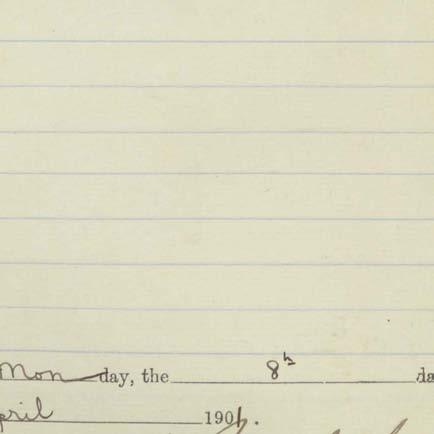 Monday, the 8h da
pril 1901.